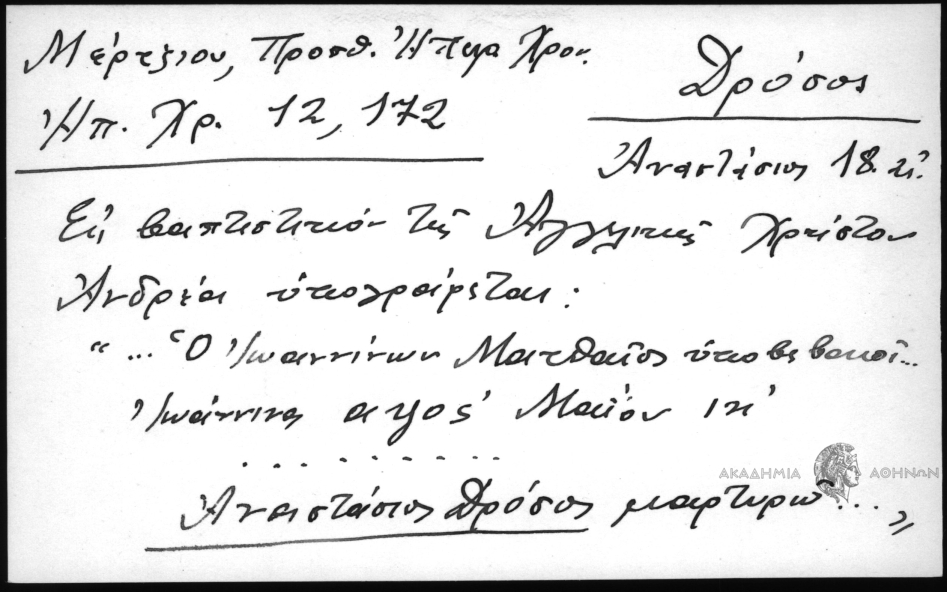 Μέρτζιου, Προσθ. Ἠπειρ Χρον.
Δρόσος
Ἠπ. Χρ. 12, 172
Ἀναστάσιος 18. αἰ.
Εἰς βαπτιστικόν τῆς Ἀγγελικῆς Χρίστου
Ἀνδρέα ὑπογράφεται:
“... Ὁ Ἰωαννίνων Ματθαῖος ὑποβεβαιοῖ...
Ἰωάννινα αψος΄ Μαΐου ιη΄
..........
Ἀναστάσιος Δρόσος μαρτυρῶ ... ”
ΑΚΑΔΗΜΙΑ ΑΘΗΝΩΝ